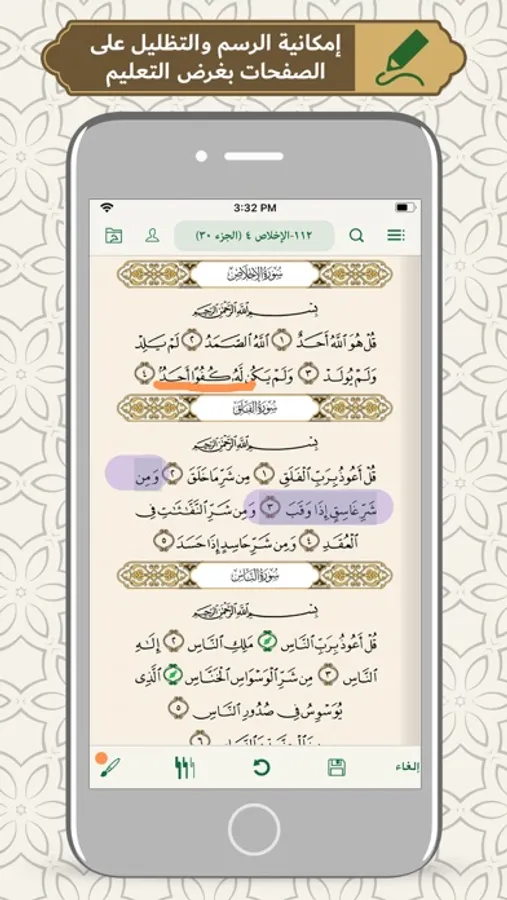 إمكانية الرسم والتظليل على
الصفحات بغرض التعليم
3:32 PM
١١٢-الإخلاص ٤ (الجزء ٣٠)
سُورَةُ الإِخْلَاصِ
بِسْمِ ٱللَّهِ ٱلرَّحْمَٰنِ ٱلرَّحِيمِ
قُلْ هُوَ ٱللَّهُ أَحَدٌ ١ ٱللَّهُ ٱلصَّمَدُ ٢ لَمْ يَلِدْ
وَلَمْ يُولَدْ ٣ وَلَمْ يَكُن لَّهُۥ كُفُوًا أَحَدٌۢ ٤
سُورَةُ الفَلَقِ
بِسْمِ ٱللَّهِ ٱلرَّحْمَٰنِ ٱلرَّحِيمِ
قُلْ أَعُوذُ بِرَبِّ ٱلْفَلَقِ ١ مِن شَرِّ مَا خَلَقَ ٢ وَمِن
شَرِّ غَاسِقٍ إِذَا وَقَبَ ٣ وَمِن شَرِّ ٱلنَّفَّٰثَٰتِ فِى
ٱلْعُقَدِ ٤ وَمِن شَرِّ حَاسِدٍ إِذَا حَسَدَ ٥
سُورَةُ النَّاسِ
بِسْمِ ٱللَّهِ ٱلرَّحْمَٰنِ ٱلرَّحِيمِ
قُلْ أَعُوذُ بِرَبِّ ٱلنَّاسِ مَلِكِ ٱلنَّاسِ ٢ إِلَٰهِ
ٱلنَّاسِ ٣ مِن شَرِّ ٱلْوَسْوَاسِ ٱلْخَنَّاسِ ٱلَّذِى
يُوَسْوِسُ فِى صُدُورِ ٱلنَّاسِ ٥
٦
إلغاء